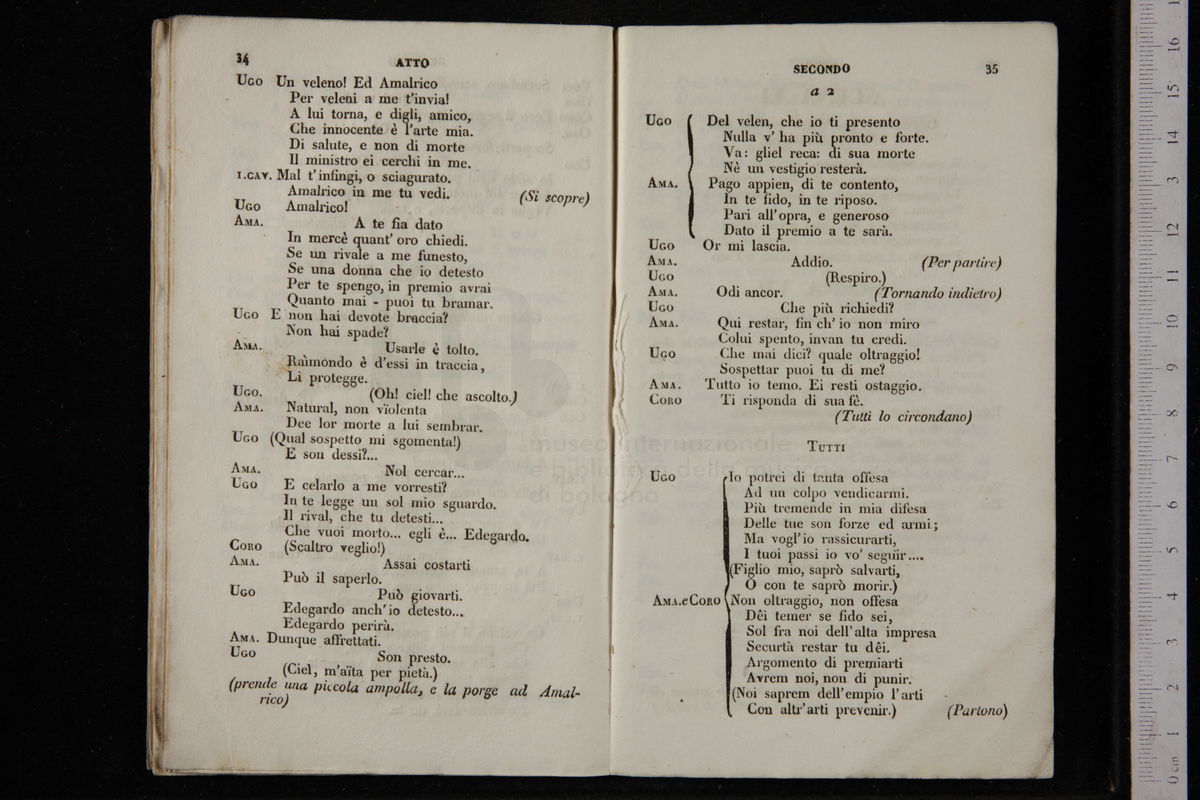 34
ATTO
UGO Un veleno! Ed Amalrico
Per veleni a me t'invia!
A lui torna, e digli, amico,
Che innocente è l'arte mia.
Di salute, e non di morte
Il ministro ei cerchi in me.
1.CAV. Mal t'infingi, o sciagurato.
Amalrico in me tu vedi. (Si scopre)
UGO Amalrico!
AMA. A te fia dato
In mercè quant' oro chiedi.
Se un rivale a me funesto,
Se una donna che io detesto
Per te spengo, in premio avrai
Quanto mai - puoi tu bramar.
UGO E non hai devote braccia?
Non hai spade?
AMA. Usarle è tolto.
Raimondo è d'essi in traccia,
Li protegge.
UGO. (Oh! ciel! che ascolto.)
AMA. Natural, non vïolenta
Dee lor morte a lui sembrar.
UGO (Qual sospetto mi sgomenta!)
E son dessi?...
AMA. Nol cercar...
UGO E celarlo a me vorresti?
In te legge un sol mio sguardo.
Il rival, che tu detesti...
Che vuoi morto... egli è... Edegardo.
CORO (Scaltro veglio!)
AMA. Assai costarti
Può il saperlo.
UGO Può giovarti.
Edegardo anch' io detesto...
Edegardo perirà.
AMA. Dunque affrettati.
UGO Son presto.
(Ciel, m'aïta per pietà.)
(prende una piccola ampolla, e la porge ad Amal-
rico)
SECONDO
35
a 2
UGO Del velen, che io ti presento
Nulla v' ha più pronto e forte.
Va: gliel reca: di sua morte
Nè un vestigio resterà.
AMA. Pago appien, di te contento,
In te fido, in te riposo.
Pari all'opra, e generoso
Dato il premio a te sarà.
UGO Or mi lascia.
AMA. Addio. (Per partire)
UGO (Respiro.)
AMA. Odi ancor. (Tornando indietro)
UGO Che più richiedi?
AMA. Qui restar, fin ch' io non miro
Colui spento, invan tu credi.
UGO Che mai dici? quale oltraggio!
Sospettar puoi tu di me?
AMA. Tutto io temo. Ei resti ostaggio.
CORO Ti risponda di sua fè.
(Tutti lo circondano)
TUTTI
UGO Io potrei di tanta offesa
Ad un colpo vendicarmi.
Più tremende in mia difesa
Delle tue son forze ed armi;
Ma vogl'io rassicurarti,
I tuoi passi io vo' seguir....
(Figlio mio, saprò salvarti,
O con te saprò morir.)
AMA.e CORO Non oltraggio, non offesa
Dêi temer se fido sei,
Sol fra noi dell'alta impresa
Securtà restar tu dêi.
Argomento di premiarti
Avrem noi, non di punir.
(Noi saprem dell'empio l'arti
Con altr'arti prevenir.) (Partono)
museo internazionale
e biblioteca della musica
di bologna
0 cm 1 2 3 4 5 6 7 8 9 10 11 12 13 14 15 16